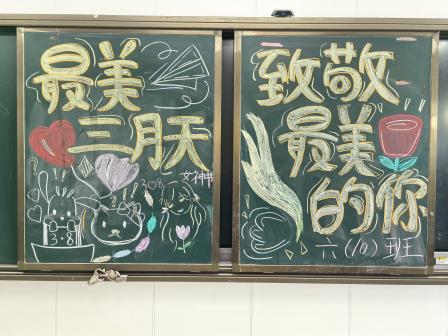 最美
三月天
3.8
女神节
3-8
致敬
最美
的你
六(10)班